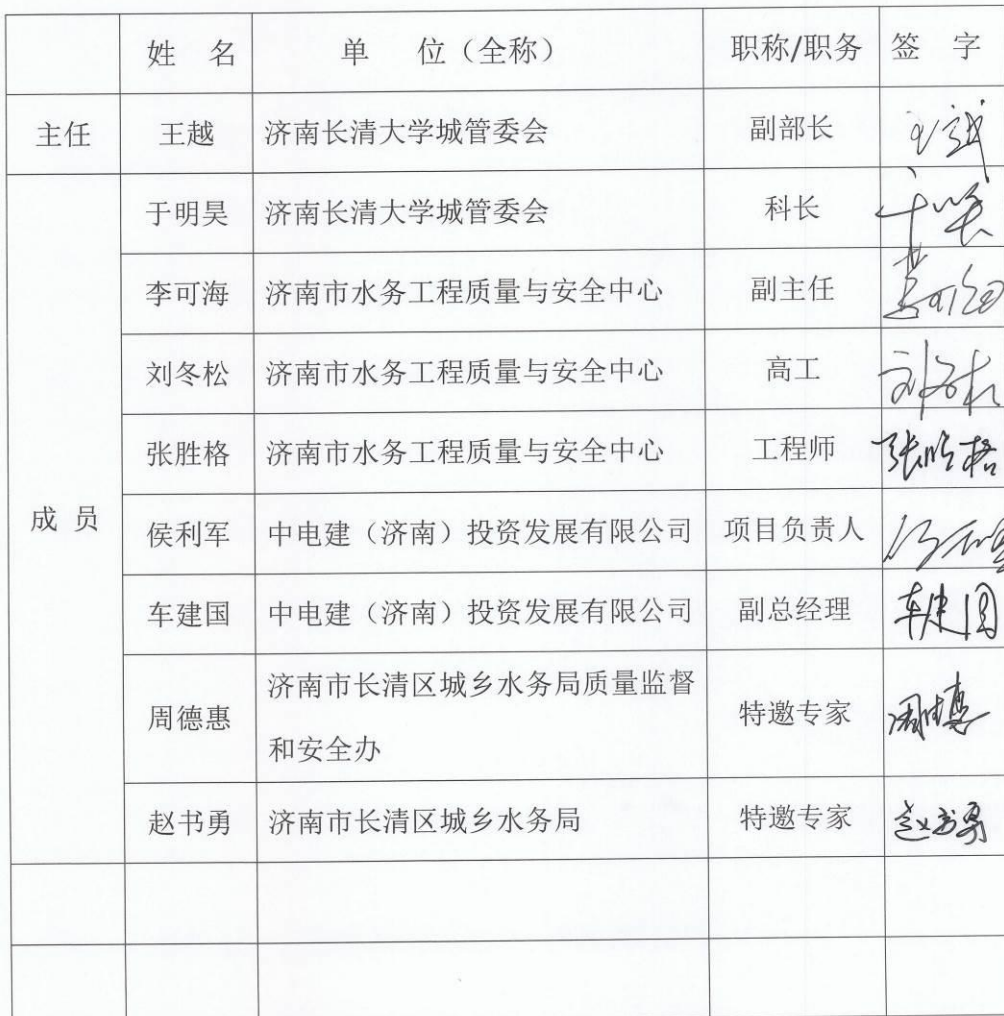 姓 名 单 位（全称） 职称/职务 签 字
主任 王越 济南长清大学城管委会 副部长
于明昊 济南长清大学城管委会 科长
李可海 济南市水务工程质量与安全中心 副主任
刘冬松 济南市水务工程质量与安全中心 高工
张胜格 济南市水务工程质量与安全中心 工程师 张胜格
成 员 侯利军 中电建（济南）投资发展有限公司 项目负责人
车建国 中电建（济南）投资发展有限公司 副总经理 车建国
周德惠 济南市长清区城乡水务局质量监督 特邀专家 周德惠
和安全办
赵书勇 济南市长清区城乡水务局 特邀专家 赵书勇